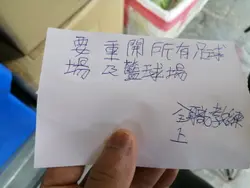 要重開所有足球
場及籃球場
教練
上